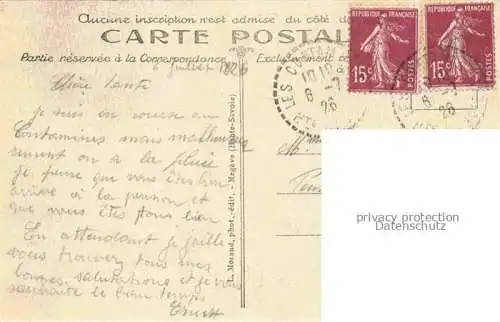 Aucune inscription n'est admise du côté de
CARTE POSTAL
Partie réservée à la Correspondance
Exclusivement
RÉPUBLIQUE FRANÇAISE
15c
POSTES
RÉPUBLIQUE FRANÇAISE
15c
POSTES
LES CONTAM
6 -7
26
6 -7
26
6 juillet 1926
Chère tante
Je suis en course aux
Contamines mais malheureu
sement on a la pluie
je pense que vous êtes bien
arrivé à la pension et
que vous êtes tous bien
En attendant je
vous trouver tous mes
bonnes salutations et je vous
souhaite le beau temps
L. Morand, phot.-édit. - Megève (Haute-Savoie)
privacy protection
Datenschutz